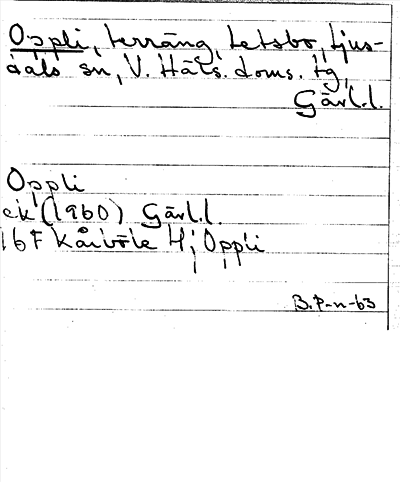 Oppli, terräng, Letsbo, Ljus-
dals sn, V. Häls. doms. tg,
Gävl.l.
Oppli
ek (1960) Gävl.l.
16F Kårböle 4; Oppli
B.P-n-63